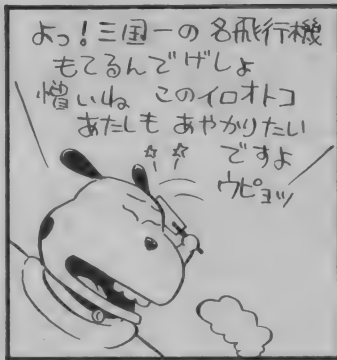 よっ！三国一の名飛行機
もてるんでげしょ
憎いね このイロオトコ
あたしも あやかりたい
ですよ
ウピョッ